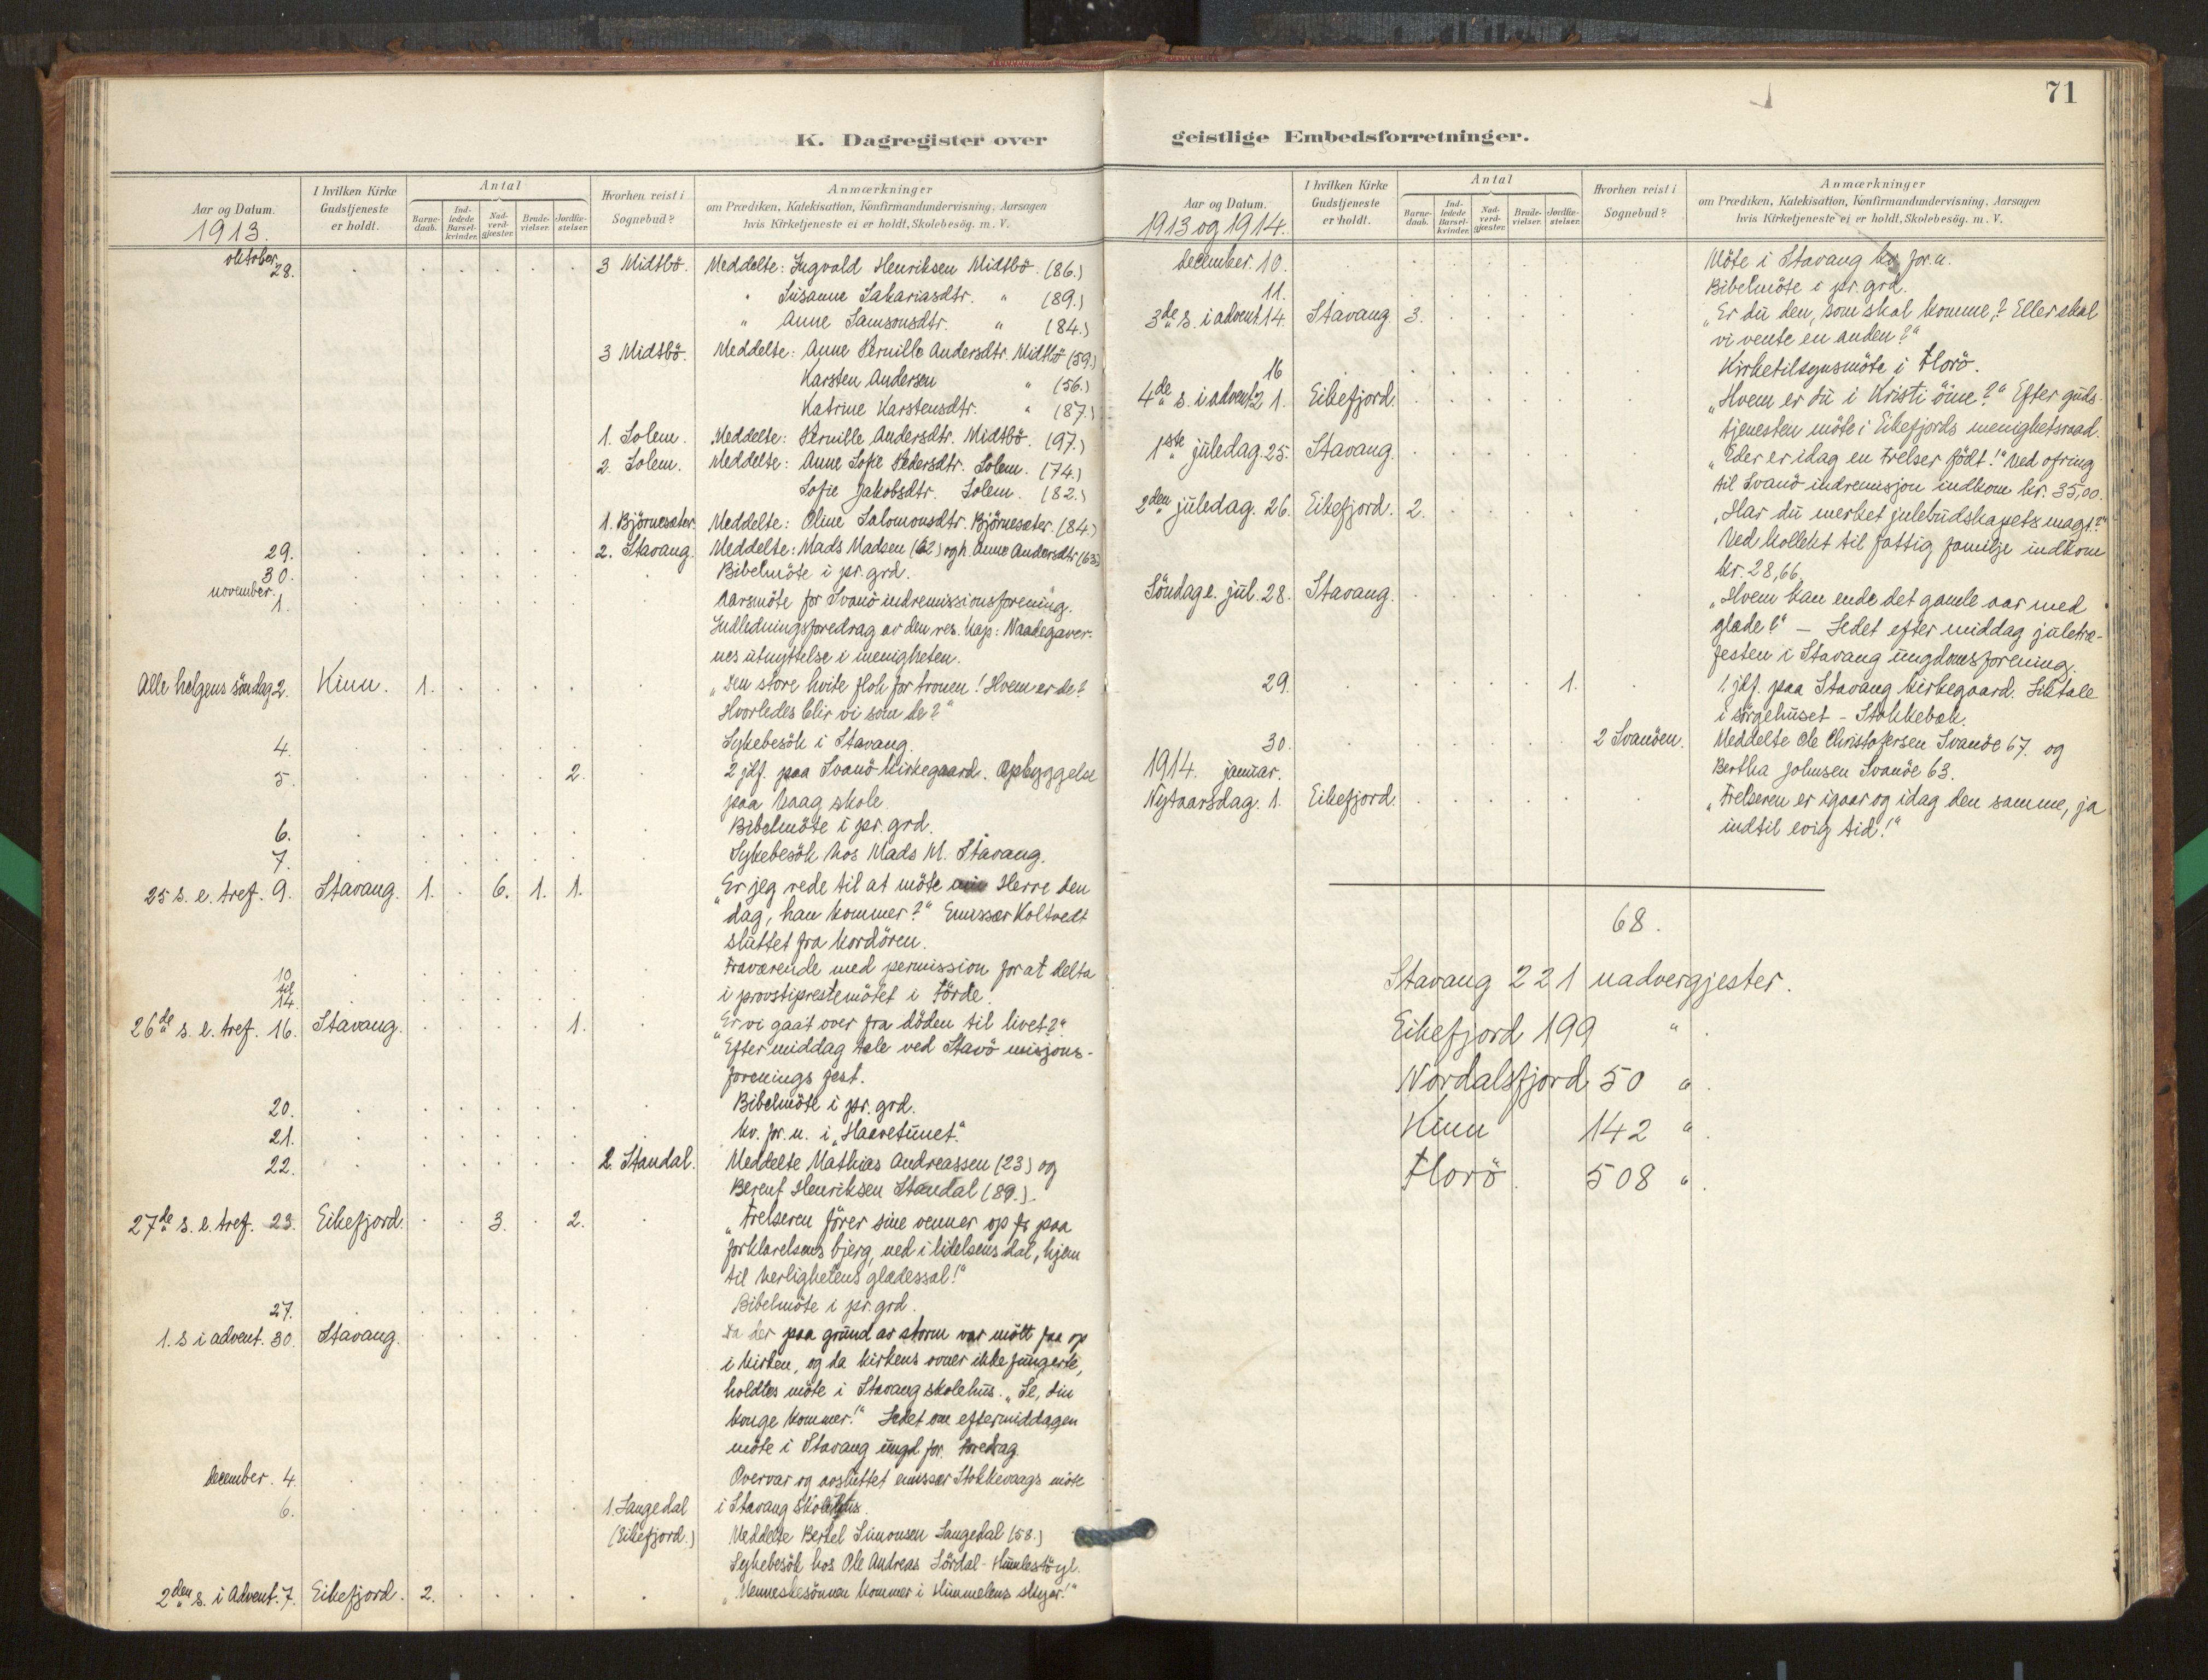 71
K. Dagregister over geistlige Embedsforretninger.
Aar og Datum.
1913.
I hvilken Kirke Gudstjeneste er holdt.
Antal
Barne-daab.
Ind-ledede Barsel-kvinder.
Nad-verd-gjæster.
Brude-vielser.
Jordfæ-stelser.
Hvorhen reist i Sognebud?
Anmærkninger
om Prædiken, Katekisation, Konfirmandundervisning, Aarsagen
hvis Kirketjeneste ei er holdt, Skolebesög. m. V.
oktober
28. 3 Midtbö. Meddelte: Ingvald Henriksen Midtbö. (86.)
" Susanne Sakariasdtr. " (89.)
" Anne Samsonsdtr. " (84.)
3 Midtbö. Meddelte: Anne Pernille Andersdtr. Midtbö (59.)
Karsten Andersen " (56.)
Katrine Karstensdtr. " (87.)
1. Solem. Meddelte: Pernille Andersdtr. Midtbö. (97.)
2. Solem. Meddelte: Anne Sofie Pedersdtr. Solem. (74.)
Sofie Jakobsdtr. Solem. (82.)
1. Björnesæter. Meddelte: Oline Salomonsdtr. Björnesæter. (84.)
29. 2. Stavang. Meddelte: Mads Madsen (62) og h. Anne Andersdtr (63)
30. Bibelmöte i pr. grd.
november.
1. Aarsmöte for Svanö indremissionsforening.
Indledningsforedrag av den res. kap: Naadegaver-
nes utnyttelse i menigheten.
Alle helgens söndag 2. Kinn. 1. „Den store hvite flok for tronen! Hvem er de?
Hvorledes blir vi som de?“
4. Sykebesök i Stavang.
5. 2. 2 jdf. paa Svanö kirkegaard. Opbyggelse
paa Vaag skole.
6. Bibelmöte i pr. grd.
7. Sykebesök hos Mads M. Stavang.
25 s. e. tref. 9. Stavang. 1. 6. 1. 1. „Er jeg rede til at möte min Herre den
dag, han kommer?“ Emissær Koltvedt
sluttet fra kordören.
10 til 14. Fraværende med permission for at delta
i provstiprestemötet i Förde.
26de s. e. tref. 16. Stavang. 1. „Er vi gaat over fra döden til livet?“
Eftermiddag tale ved Stavö misjons-
forenings fest.
20. Bibelmöte i pr. grd.
21. Kv. for. u. i „Haavetunet“.
22. 2. Standal. Meddelte Mathias Andreassen (23) og
Berent Henriksen Standal (89.).
27de s. e. tref. 23. Eikefjord. 3. 2. „Frelseren förer sine venner op paa
forklarelsens bjerg, ned i lidelsens dal, hjem
til herlighetens gladessal!“
27. Bibelmöte i pr. grd.
1. s i advent. 30. Stavang. Da der paa grund av storm var möt faa op
i kirken, og da kirkens ovner ikke fungerte,
holdtes möte i Stavang skolehus. „Se, din
konge kommer!“ Ledet om eftermiddagen
möte i Stavang ungd. for. foredrag.
december. 4. Overvar og avsluttet emissær Stokkevaags möte
6. 1. Langedal i Stavang skolehus.
(Eikefjord.) Meddelte Bertel Simonsen Langedal (58.)
Sykebesök hos Ole Andreas Sördal-
2den s. i Advent. 7. Eikefjord. 2. „Menneskesönnen kommer i Himmelens skyer!“
Aar og Datum.
1913 og 1914.
I hvilken Kirke Gudstjeneste er holdt.
Antal
Barne-daab.
Ind-ledede Barsel-kvinder.
Nad-verd-gjæster.
Brude-vielser.
Jordfæ-stelser.
Hvorhen reist i Sognebud?
Anmærkninger
om Prædiken, Katekisation, Konfirmandundervisning, Aarsagen
hvis Kirketjeneste ei er holdt, Skolebesög. m. V.
december. 10. Möte i Stavang kv. for. u.
11. Bibelmöte i pr. grd.
3de s. i advent 14. Stavang. 3. „Er du den, som skal komme,? Eller skal
vi vente en anden?“
16 Kirketilsynsmöte i Florö.
4de s. i advent 21. Eikefjord. „Hvem er du i Kristi öine?“ Efter guds-
tjenesten möte i Eikefjords menighetsraad.
1ste juledag. 25. Stavang. „Eder er idag en Frelser födt!“ Ved ofring
til Svanö indremisjon indkom kr. 35,00.
2den juledag. 26. Eikefjord. 2. „Har du merket julebudskapets magt?“
Ved kollekt til fattig familje indkom
kr. 28,66.
Söndag e. jul. 28. Stavang. „Hvem kan ende det gamle aar med
glæde?“ — Ledet eftermiddag juletræ-
festen i Stavang ungdomsforening.
29. 1. 1 jdf. paa Stavang kirkegaard. Liktale
i sörgehuset - Stokkebæk.
30. 2 Svanöen. Meddelte Ole Christofersen Svanöe 67. og
Bertha Johnsen Svanöe 63.
1914. januar.
Nytaarsdag. 1. Eikefjord. „Frelseren er igaar og idag den samme, ja
indtil evig tid!“
68.
Stavang 221 nadvergjester.
Eikefjord 199 " .
Nordalsfjord 50 " .
Kinn 142 " .
Florö. 508 " .